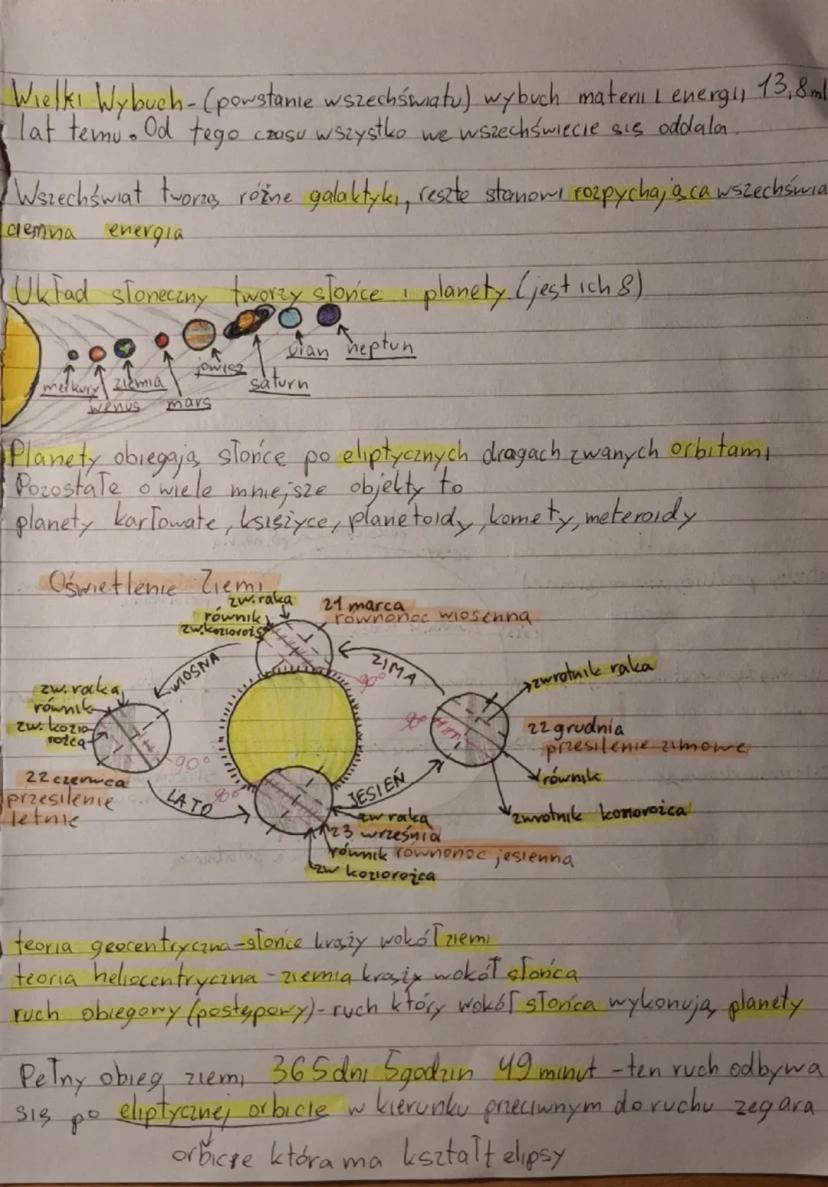 Wielki Wybuch - (powstanie wszechświatu) wybuch materii i energii 13,8 ml
lat temu. Od tego czasu wszystko we wszechświecie się oddala.
Wszechświat tworzą różne galaktyki, resztę stanowi rozpychająca wszechświa
ciemna energia
Układ słoneczny tworzy słońce i planety (jest ich 8)
merkury
wenus
ziemia
mars
jowisz
saturn
uran
neptun
Planety obiegają słońce po eliptycznych dragach zwanych orbitami
Pozostałe o wiele mniejsze objekty to
planety karłowate, księżyce, planetoidy, komety, meteroidy
Oświetlenie Ziemi
zw. raka
równik
zw. kozioroż
21 marca
równonoc wiosenna
WIOSNA
ZIMA
90°
zw. raka
równik
zw. kozio
rożca
90°
22 czerwca
przesilenie
letnie
LATO
90°
zwrotnik raka
90°
22 grudnia
przesilenie zimowe
równik
zwrotnik koziorożca
JESIEŃ
zw raka
23 września
równik równonoc jesienna
zw koziorożca
teoria geocentryczna - słońce krąży wokół ziemi
teoria heliocentryczna - ziemia krąży wokół słońca
ruch obiegowy (postępowy) - ruch który wokół słońca wykonują planety
Pełny obieg ziemi 365 dni 5 godzin 49 minut - ten ruch odbywa
się po eliptycznej orbicie w kierunku przeciwnym do ruchu zegara
orbicie która ma kształt elipsy